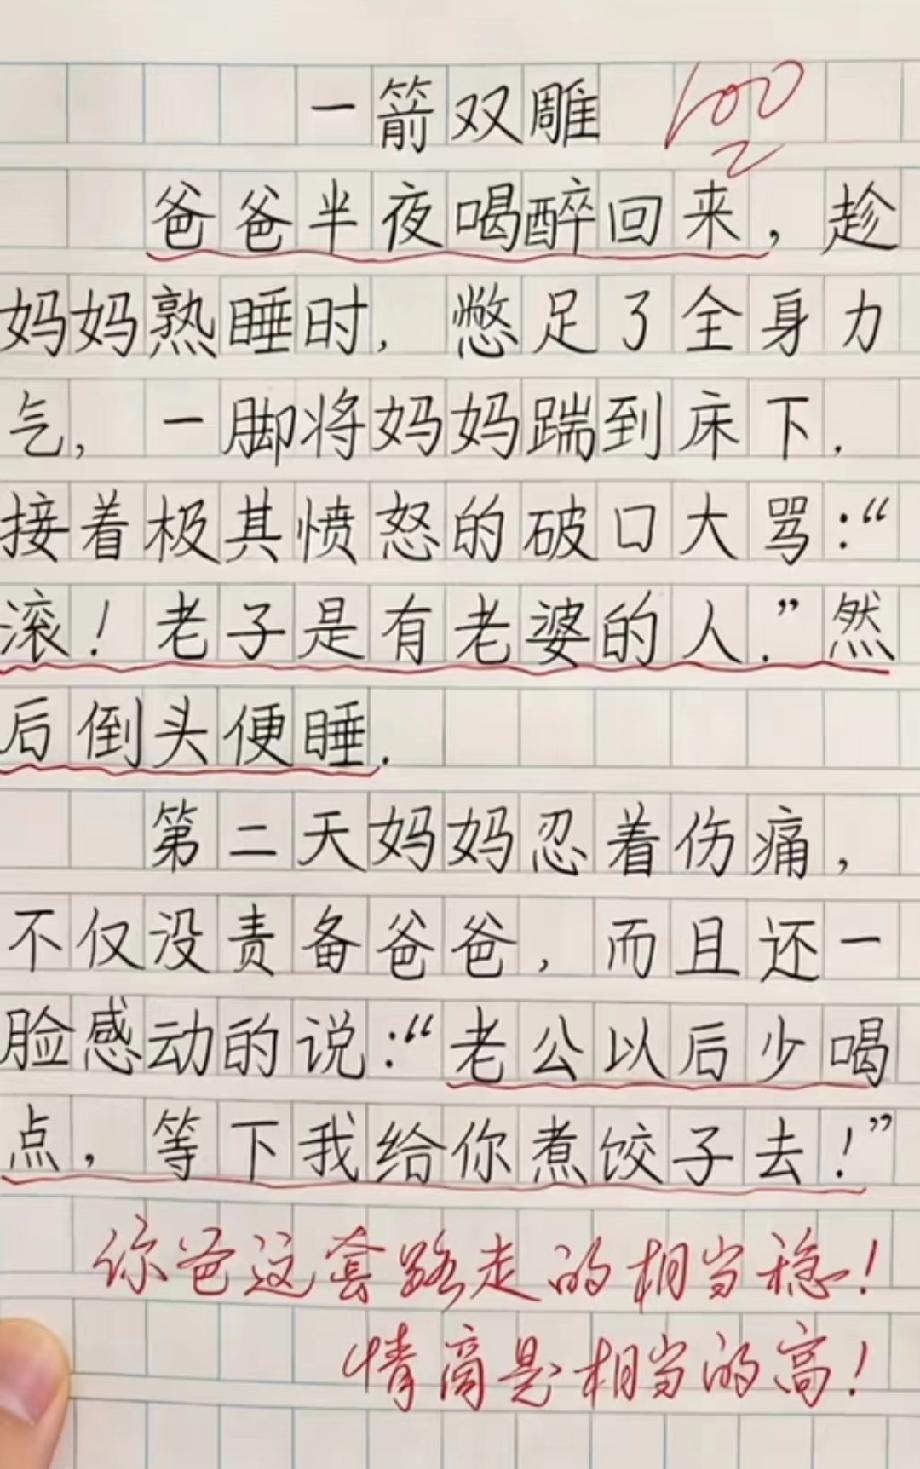 一箭双雕 100
爸爸半夜喝醉回来，趁
妈妈熟睡时，憋足了全身力
气，一脚将妈妈踹到床下．
接着极其愤怒的破口大骂：“
滚！老子是有老婆的人．”然
后倒头便睡．
第二天妈妈忍着伤痛，
不仅没责备爸爸，而且还一
脸感动的说：“老公以后少喝
点，等下我给你煮饺子去！”
你爸这套路走的相当稳！
情商是相当的高！